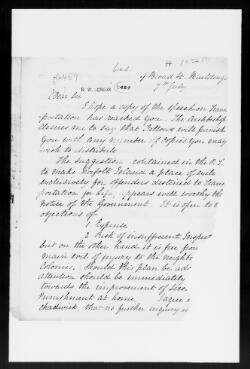 9 Broad St. Buildings
7th July
Dear Sir
I hope a copy of the speech on Trans
portation has reached you. The Archbishop
desires me to say that Fellowes will furnish
you with any number of copies you may
wish to distribute.
The suggestion contained in the
to make Norfolk Island a place of exile
exclusively for offenders destined to Trans
portation for life appears well worthy the
notice of the Government. It is open to 2
objections of
1 Expense
2 Risk of insufficient Inspect
but on the other hand it is free from
main evil of injury to the neighb
Colonies. Should this plan be ado
attention should be immediately
towards the improvement of Seco
Punishment at home. I agree
Chadwick, that no further inquiry is